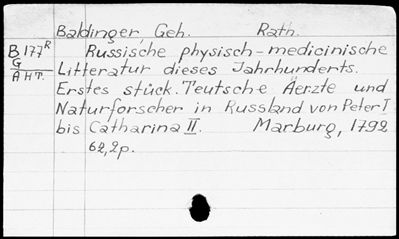 Baldinger, Geh. Rath.
B177R Russische physisch-medicinische
G
AHT. Litteratur dieses Jahrhunderts.
Erstes stück. Teutsche Äerzte und
Naturforscher in Russland von Peter I
bis Catharina II. Marburg, 1792
62,2p.